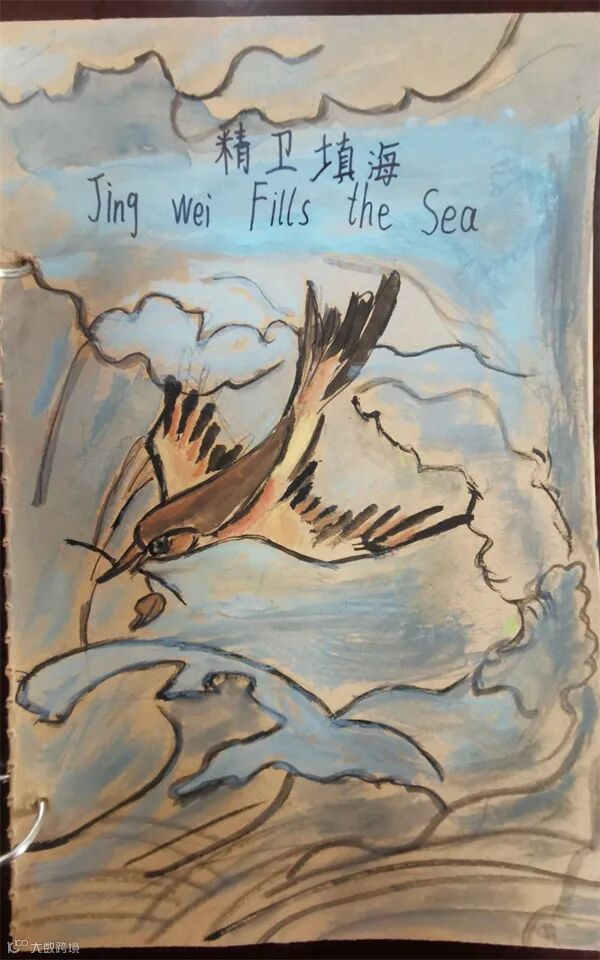 精卫填海
Jing wei Fills the Sea
大数跨境